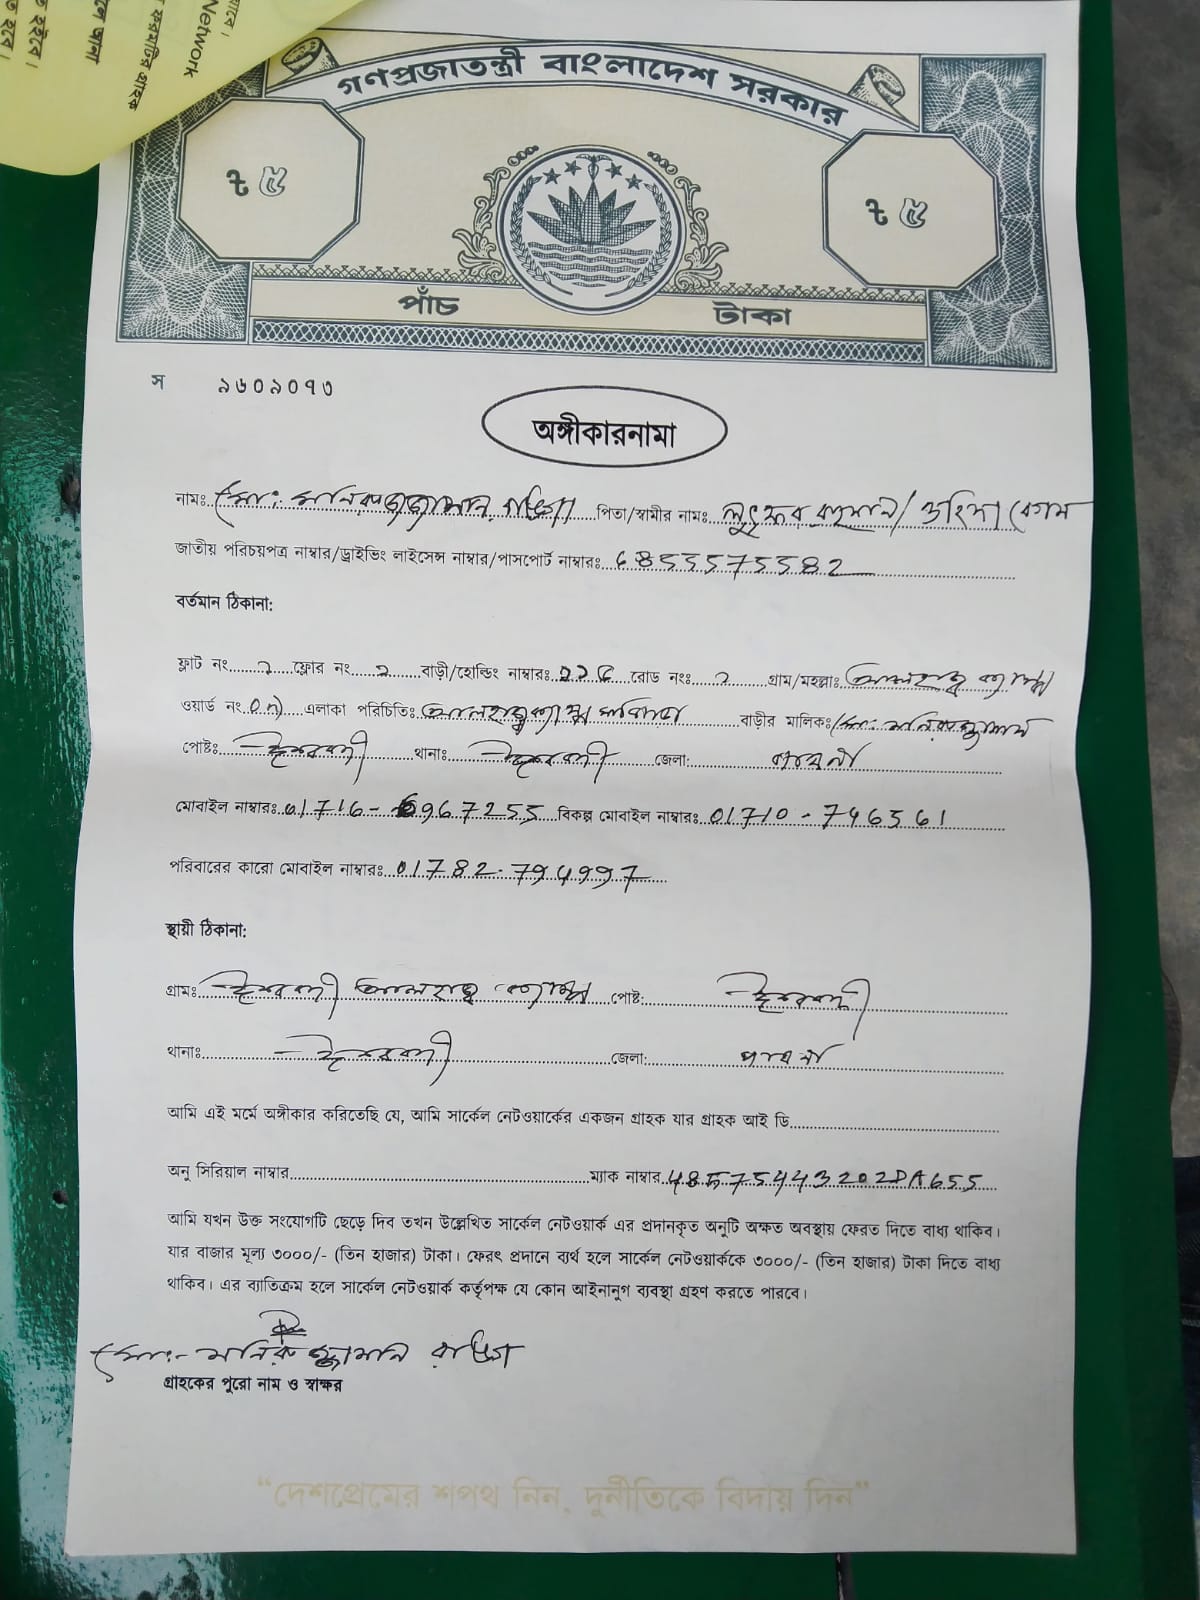 Network
গণপ্রজাতন্ত্রী বাংলাদেশ সরকার
৳ ৫
৳ ৫
পাঁচ টাকা
স ৯৬০৯০৭৩
অঙ্গীকারনামা
নামঃ মোঃ মনিরুজ্জামান পিতা/স্বামীর নামঃ লুৎফর রহমান/ ওহিদা বেগম
জাতীয় পরিচয়পত্র নাম্বার/ড্রাইভিং লাইসেন্স নাম্বার/পাসপোর্ট নাম্বারঃ 6855575582
বর্তমান ঠিকানা:
ফ্লাট নং ফ্লোর নং ২ বাড়ী/হোল্ডিং নাম্বারঃ রোড নংঃ গ্রাম/মহল্লাঃ আলহাজ্ব ক্যাম্প
ওয়ার্ড নং এলাকা পরিচিতিঃ আলহাজ্ব ক্যাম্প বাড়ীর মালিকঃ মোঃ মনিরুজ্জামান
পোষ্টঃ ঈশ্বরদী থানাঃ ঈশ্বরদী জেলা: পাবনা
মোবাইল নাম্বারঃ 01716-6967255 বিকল্প মোবাইল নাম্বারঃ 01710-746561
পরিবারের কারো মোবাইল নাম্বারঃ 01782-794997
স্থায়ী ঠিকানা:
গ্রামঃ ঈশ্বরদী আলহাজ্ব ক্যাম্প পোষ্ট: ঈশ্বরদী
থানাঃ ঈশ্বরদী জেলা: পাবনা
আমি এই মর্মে অঙ্গীকার করিতেছি যে, আমি সার্কেল নেটওয়ার্কের একজন গ্রাহক যার গ্রাহক আই ডি
অনু সিরিয়াল নাম্বার ম্যাক নাম্বার 485754432028A655
আমি যখন উক্ত সংযোগটি ছেড়ে দিব তখন উল্লেখিত সার্কেল নেটওয়ার্ক এর প্রদানকৃত অনুটি অক্ষত অবস্থায় ফেরত দিতে বাধ্য থাকিব।
যার বাজার মূল্য ৩০০০/- (তিন হাজার) টাকা। ফেরৎ প্রদানে ব্যর্থ হলে সার্কেল নেটওয়ার্ককে ৩০০০/- (তিন হাজার) টাকা দিতে বাধ্য
থাকিব। এর ব্যাতিক্রম হলে সার্কেল নেটওয়ার্ক কর্তৃপক্ষ যে কোন আইনানুগ ব্যবস্থা গ্রহণ করতে পারবে।
মোঃ- মনিরুজ্জামান
গ্রাহকের পুরো নাম ও স্বাক্ষর
“দেশপ্রেমের শপথ নিন, দুর্নীতিকে বিদায় দিন”